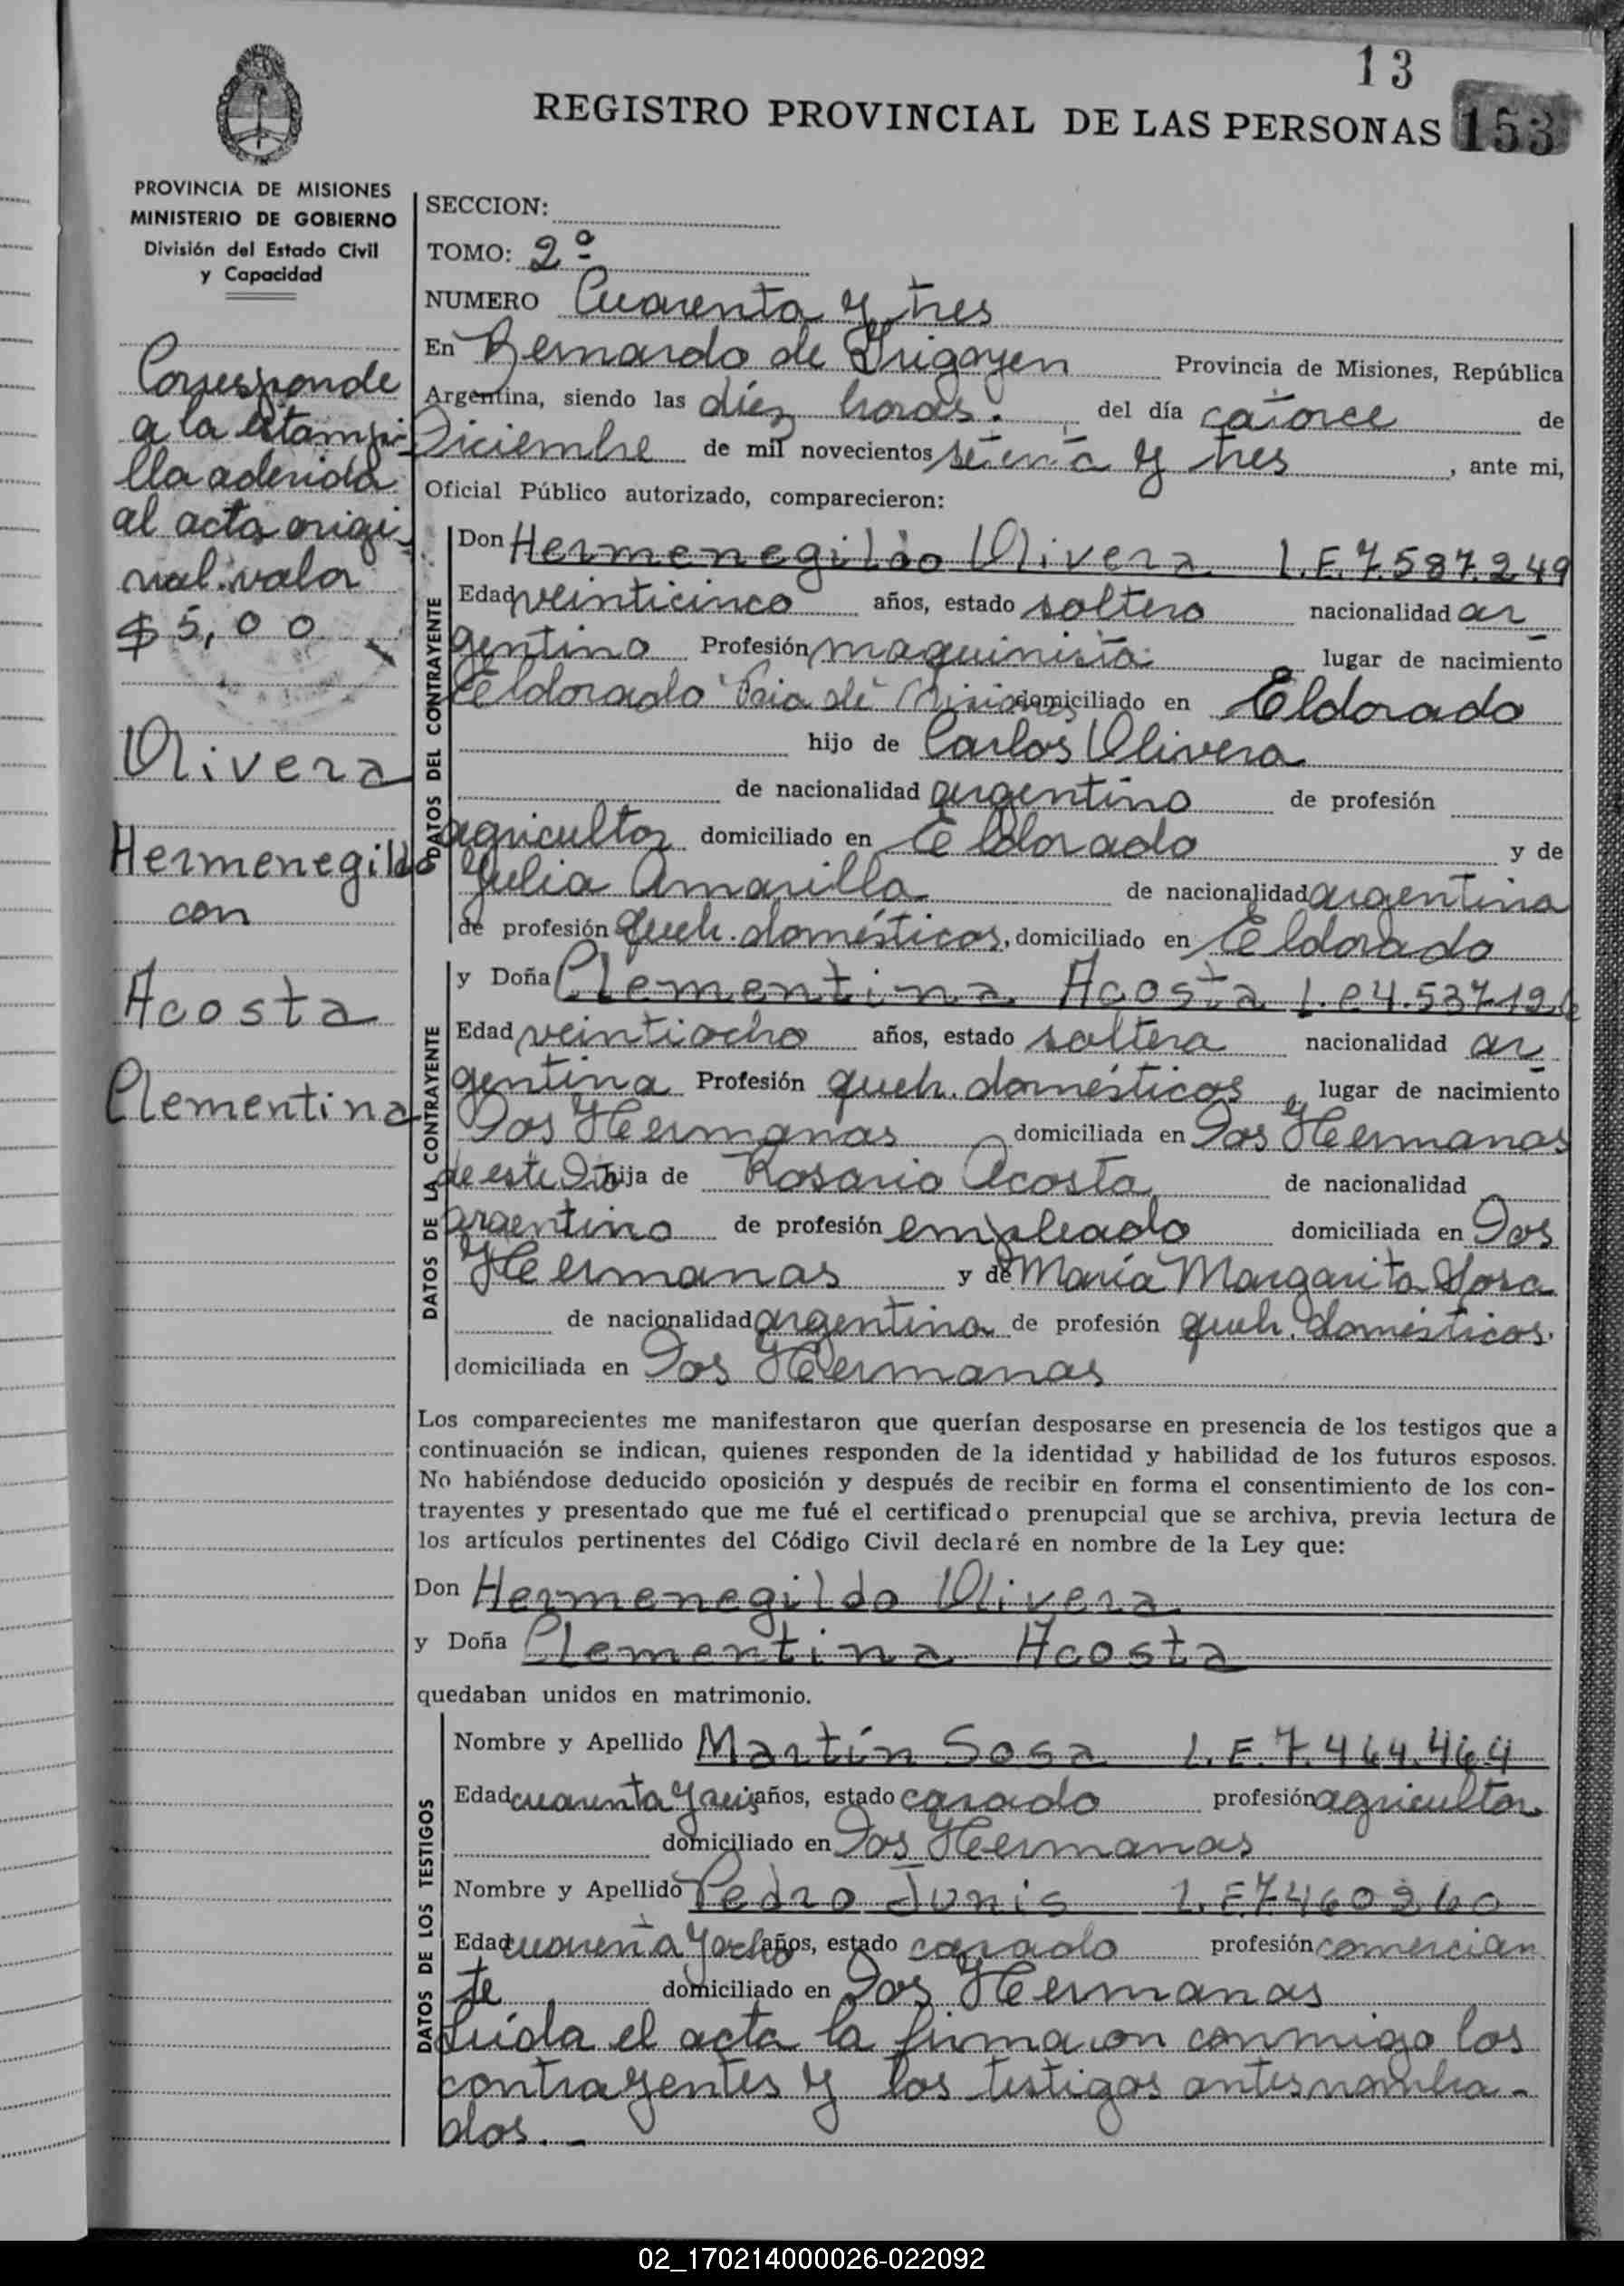 13
REGISTRO PROVINCIAL DE LAS PERSONAS 153
PROVINCIA DE MISIONES
MINISTERIO DE GOBIERNO
División del Estado Civil
y Capacidad
Corresponde
a la estampi-
lla aderida
al acta origi-
nal valor
$ 5,00
Olivera
Hermenegildo
con
Acosta
Clementina
SECCION:
TOMO: 2º
NUMERO Cuarenta y tres
En Bernardo de Irigoyen Provincia de Misiones, República
Argentina, siendo las diéz horas. del día catorce de
Diciembre de mil novecientos setenta y tres, ante mi,
Oficial Público autorizado, comparecieron:
DATOS DEL CONTRAYENTE
Don Hermenegildo Olivera L.E.7.587.249
Edad veinticinco años, estado soltero nacionalidad ar
gentino Profesión maquinista lugar de nacimiento
Eldorado Pcia de Misiones domiciliado en Eldorado
hijo de Carlos Olivera
de nacionalidad argentino de profesión
agricultor domiciliado en Eldorado y de
Julia Amarilla de nacionalidad argentina
de profesión queh. domésticos, domiciliado en Eldorado
DATOS DE LA CONTRAYENTE
y Doña Clementina Acosta L.C 4.537.126
Edad veintiocho años, estado soltera nacionalidad ar
gentina Profesión queh. domésticos, lugar de nacimiento
Dos Hermanas domiciliada en Dos Hermanas
de este Dto hija de Rosario Acosta de nacionalidad
argentino de profesión empleado domiciliada en Dos
Hermanas y de María Margarita Sosa
de nacionalidad argentina de profesión queh. domésticos.
domiciliada en Dos Hermanas
Los comparecientes me manifestaron que querían desposarse en presencia de los testigos que a
continuación se indican, quienes responden de la identidad y habilidad de los futuros esposos.
No habiéndose deducido oposición y después de recibir en forma el consentimiento de los con-
trayentes y presentado que me fué el certificado prenupcial que se archiva, previa lectura de
los artículos pertinentes del Código Civil declaré en nombre de la Ley que:
Don Hermenegildo Olivera
y Doña Clementina Acosta
quedaban unidos en matrimonio.
DATOS DE LOS TESTIGOS
Nombre y Apellido Martín Sosa L.E.7.464.464
Edad cuarenta y seis años, estado casado profesión agricultor
domiciliado en Dos Hermanas
Nombre y Apellido Pedro Junis L.E.7460260
Edad cuarenta y ocho años, estado casado profesión comercian
te domiciliado en Dos Hermanas
Leída el acta la firmaron conmigo los
contrayentes y los testigos antesnombra-
dos.-
02_170214000026-022092